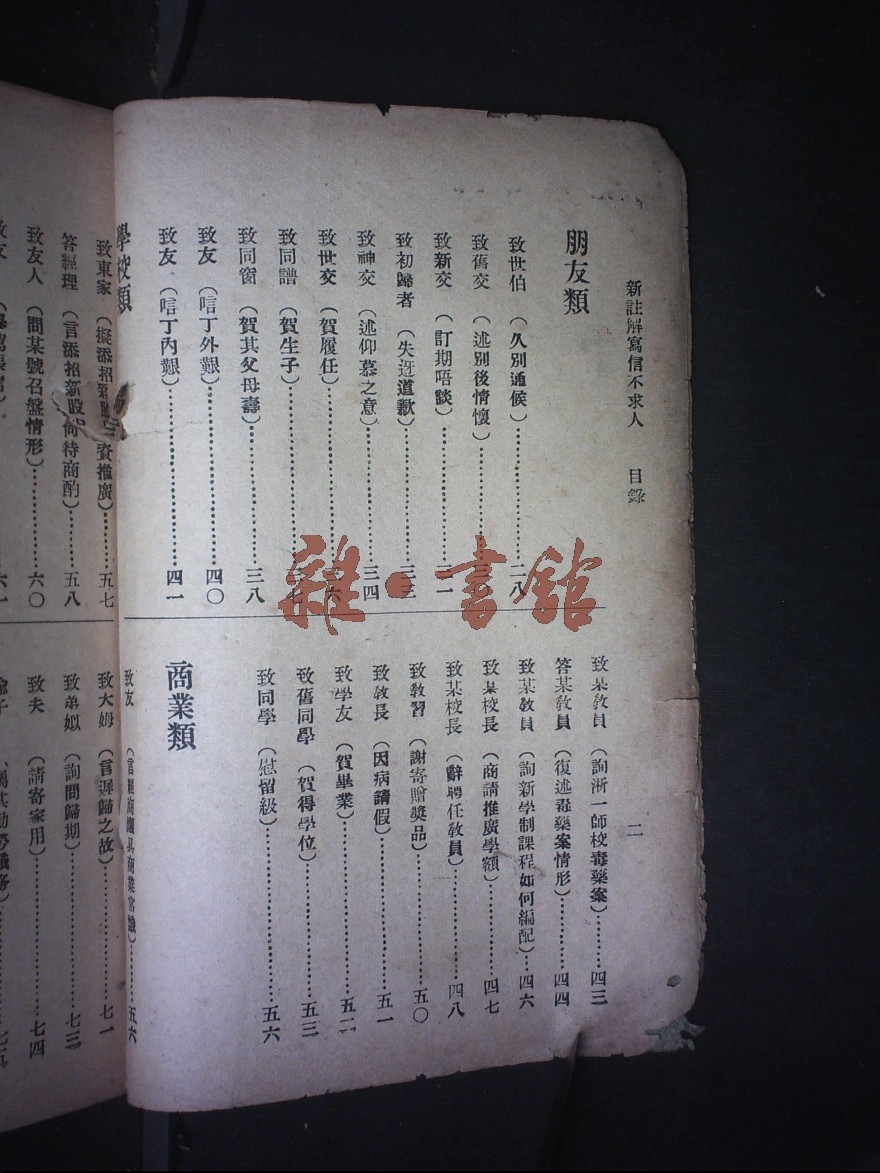 新註解寫信不求人 目錄 二
朋友類
致世伯（久別通候）……二八
致舊交（述別後情懷）……三〇
致新交（訂期唔談）……三一
致初歸者（失迓道歉）……三三
致神交（述仰慕之意）……三四
致世交（賀履任）……三六
致同譜（賀生子）……三七
致同窗（賀其父母壽）……三八
致友（唁丁外艱）……四〇
致友（唁丁內艱）……四一
學校類
致某教員（詢浙一師校毒藥案）……四三
答某敎員（復述毒藥案情形）……四四
致某敎員（詢新學制課程如何編配）……四六
致某校長（商請推廣學額）……四七
致某校長（辭聘任敎員）……四八
致敎習（謝寄贈獎品）……五〇
致敎長（因病請假）……五一
致學友（賀畢業）……五二
致舊同學（賀得學位）……五三
致同學（慰留級）……五六
商業類
致友（言經商應具商業常識）……五六
致東家（擬添招新股 資推廣）……五七
答經理（言添招新股尚待商酌）……五八
致友人（問某號召盤情形）……六〇
致友
六一
致大姆（言遲歸之故）……七一
致弟姒（詢問歸期）……七三
致夫（請寄家用）……七四
雜·書館